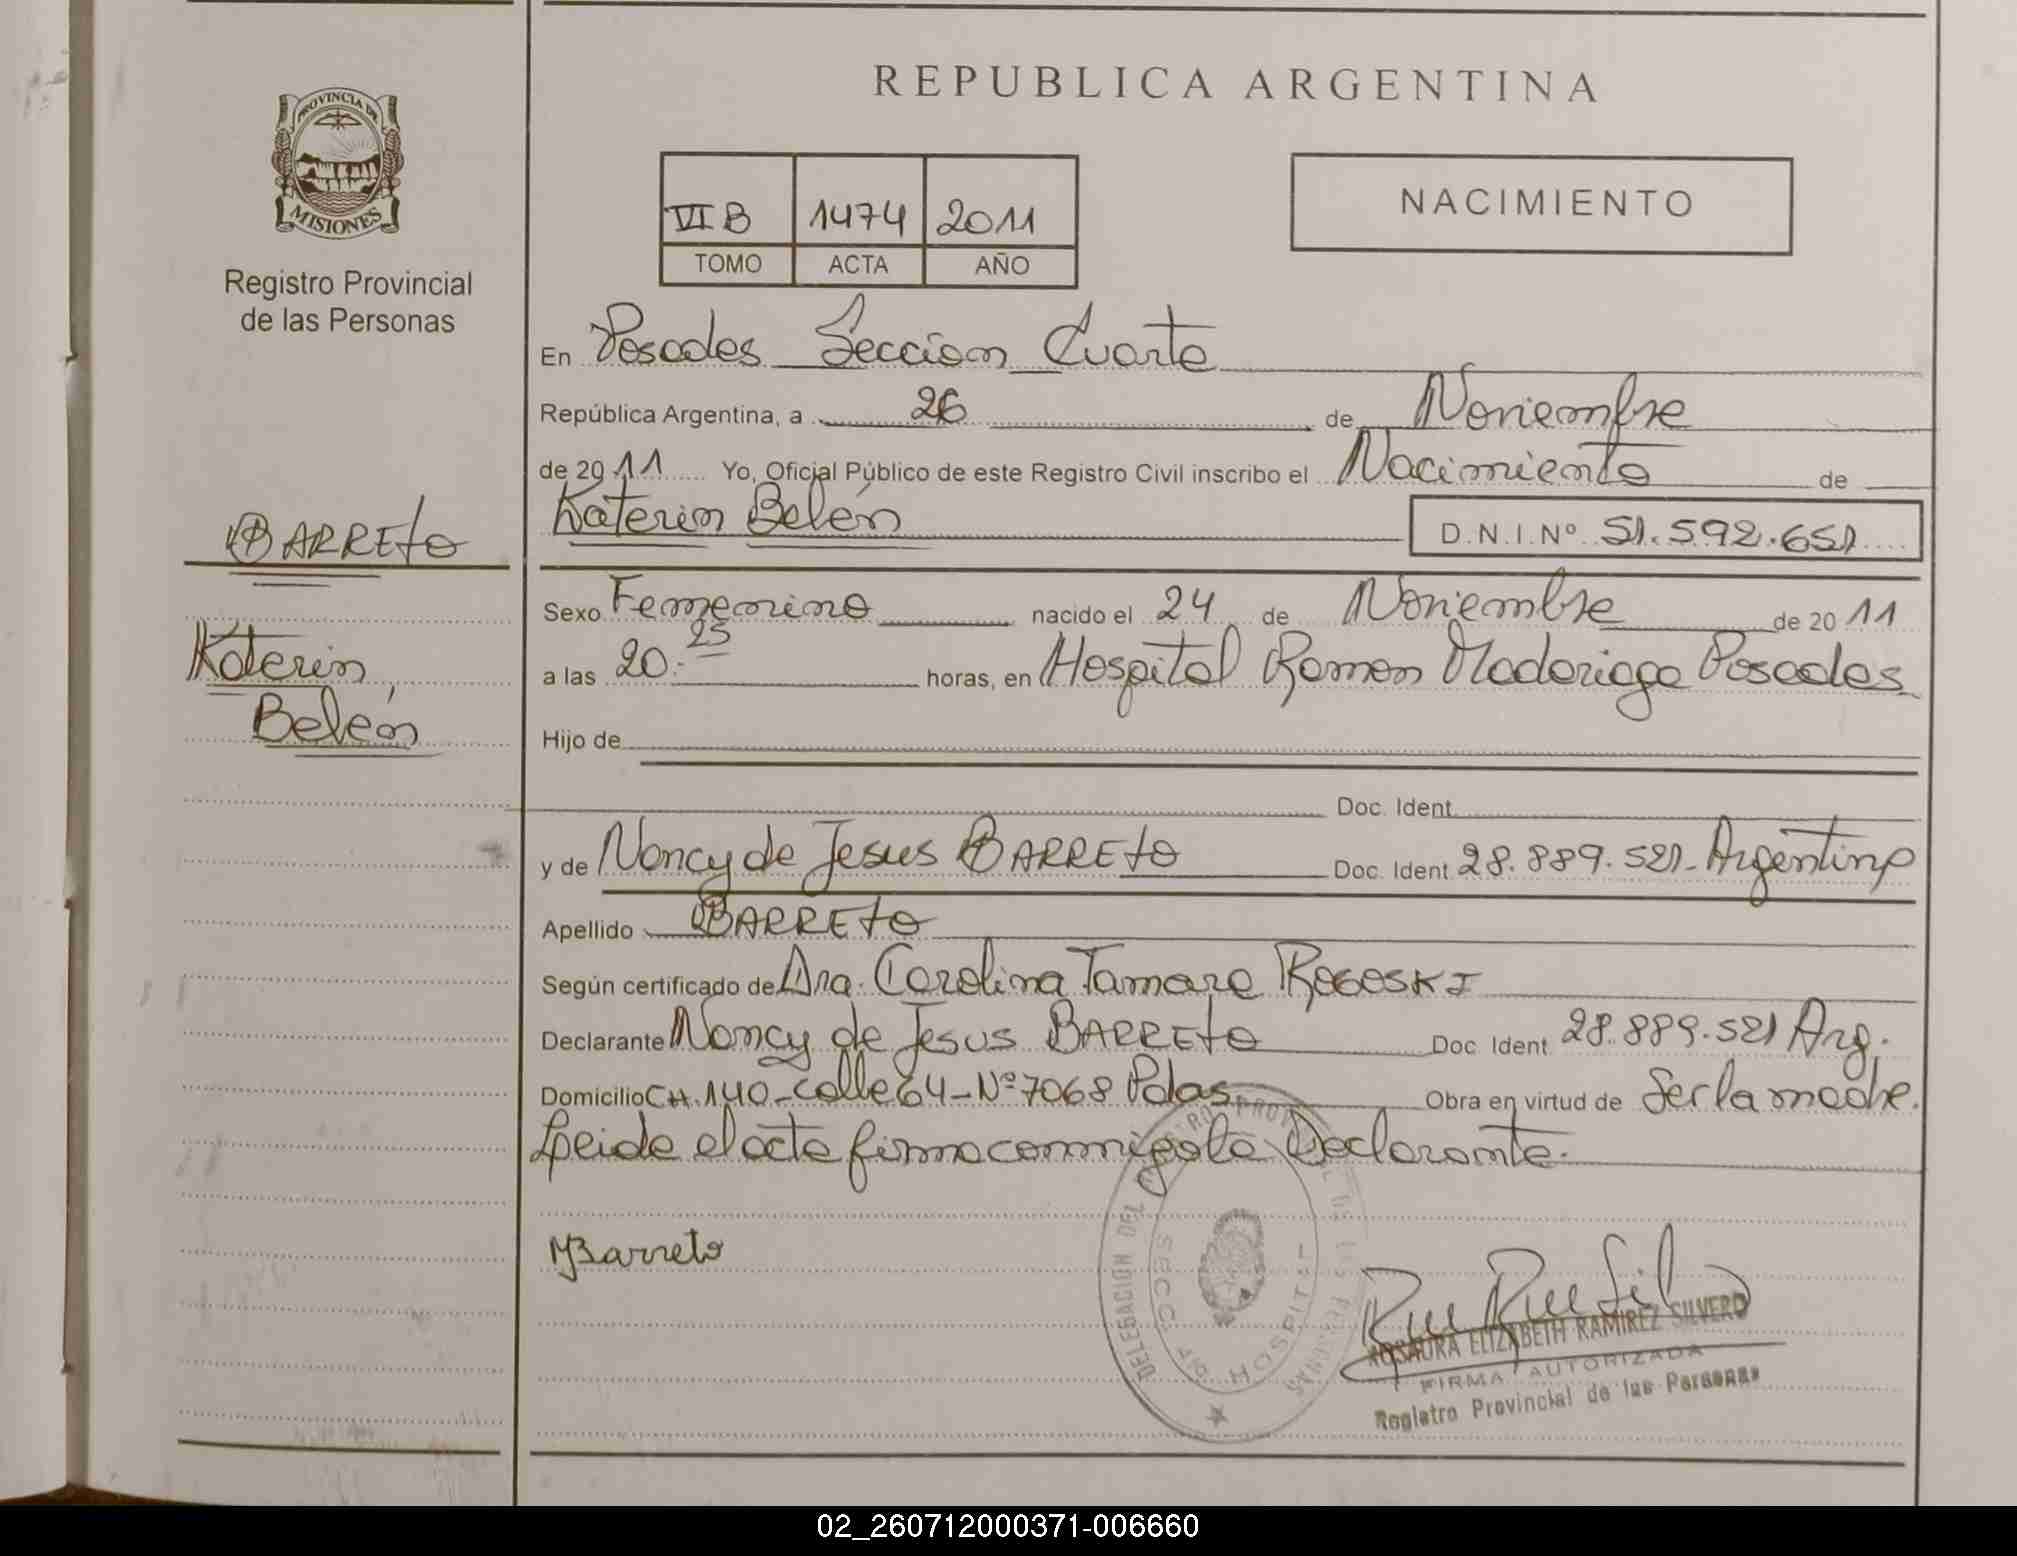 PROVINCIA DE
MISIONES
Registro Provincial
de las Personas
BARRETO
Katerin
Belén
REPUBLICA ARGENTINA
VI B 1474 2011
TOMO ACTA AÑO
NACIMIENTO
En Posadas Seccion Cuarta
República Argentina, a 26 de Noviembre
de 2011 Yo, Oficial Público de este Registro Civil inscribo el Nacimiento de
Katerin Belén D.N.I.Nº 51.592.651
Sexo Femenino nacido el 24 de Noviembre de 2011
a las 20:25 horas, en Hospital Ramon Madariaga Posadas
Hijo de
Doc. Ident
y de Nancy de Jesus BARRETO Doc. Ident 28.889.521- Argentina
Apellido BARRETO
Según certificado de Dra. Carolina Tamara ROGOSKI
Declarante Nancy de Jesus BARRETO Doc Ident 28.889.521 Arg.
Domicilio CH.140-calle 64-Nº7068 Pdas Obra en virtud de Ser la madre.
Leida el acta firma conmigo la Declarante.
NBarreto
DELEGACIÓN DEL REGISTRO PROVINCIAL DE LAS PERSONAS
SECC. 4ta HOSPITAL
ROSAURA ELIZABETH RAMIREZ SILVERO
FIRMA AUTORIZADA
Registro Provincial de las Personas
02_260712000371-006660